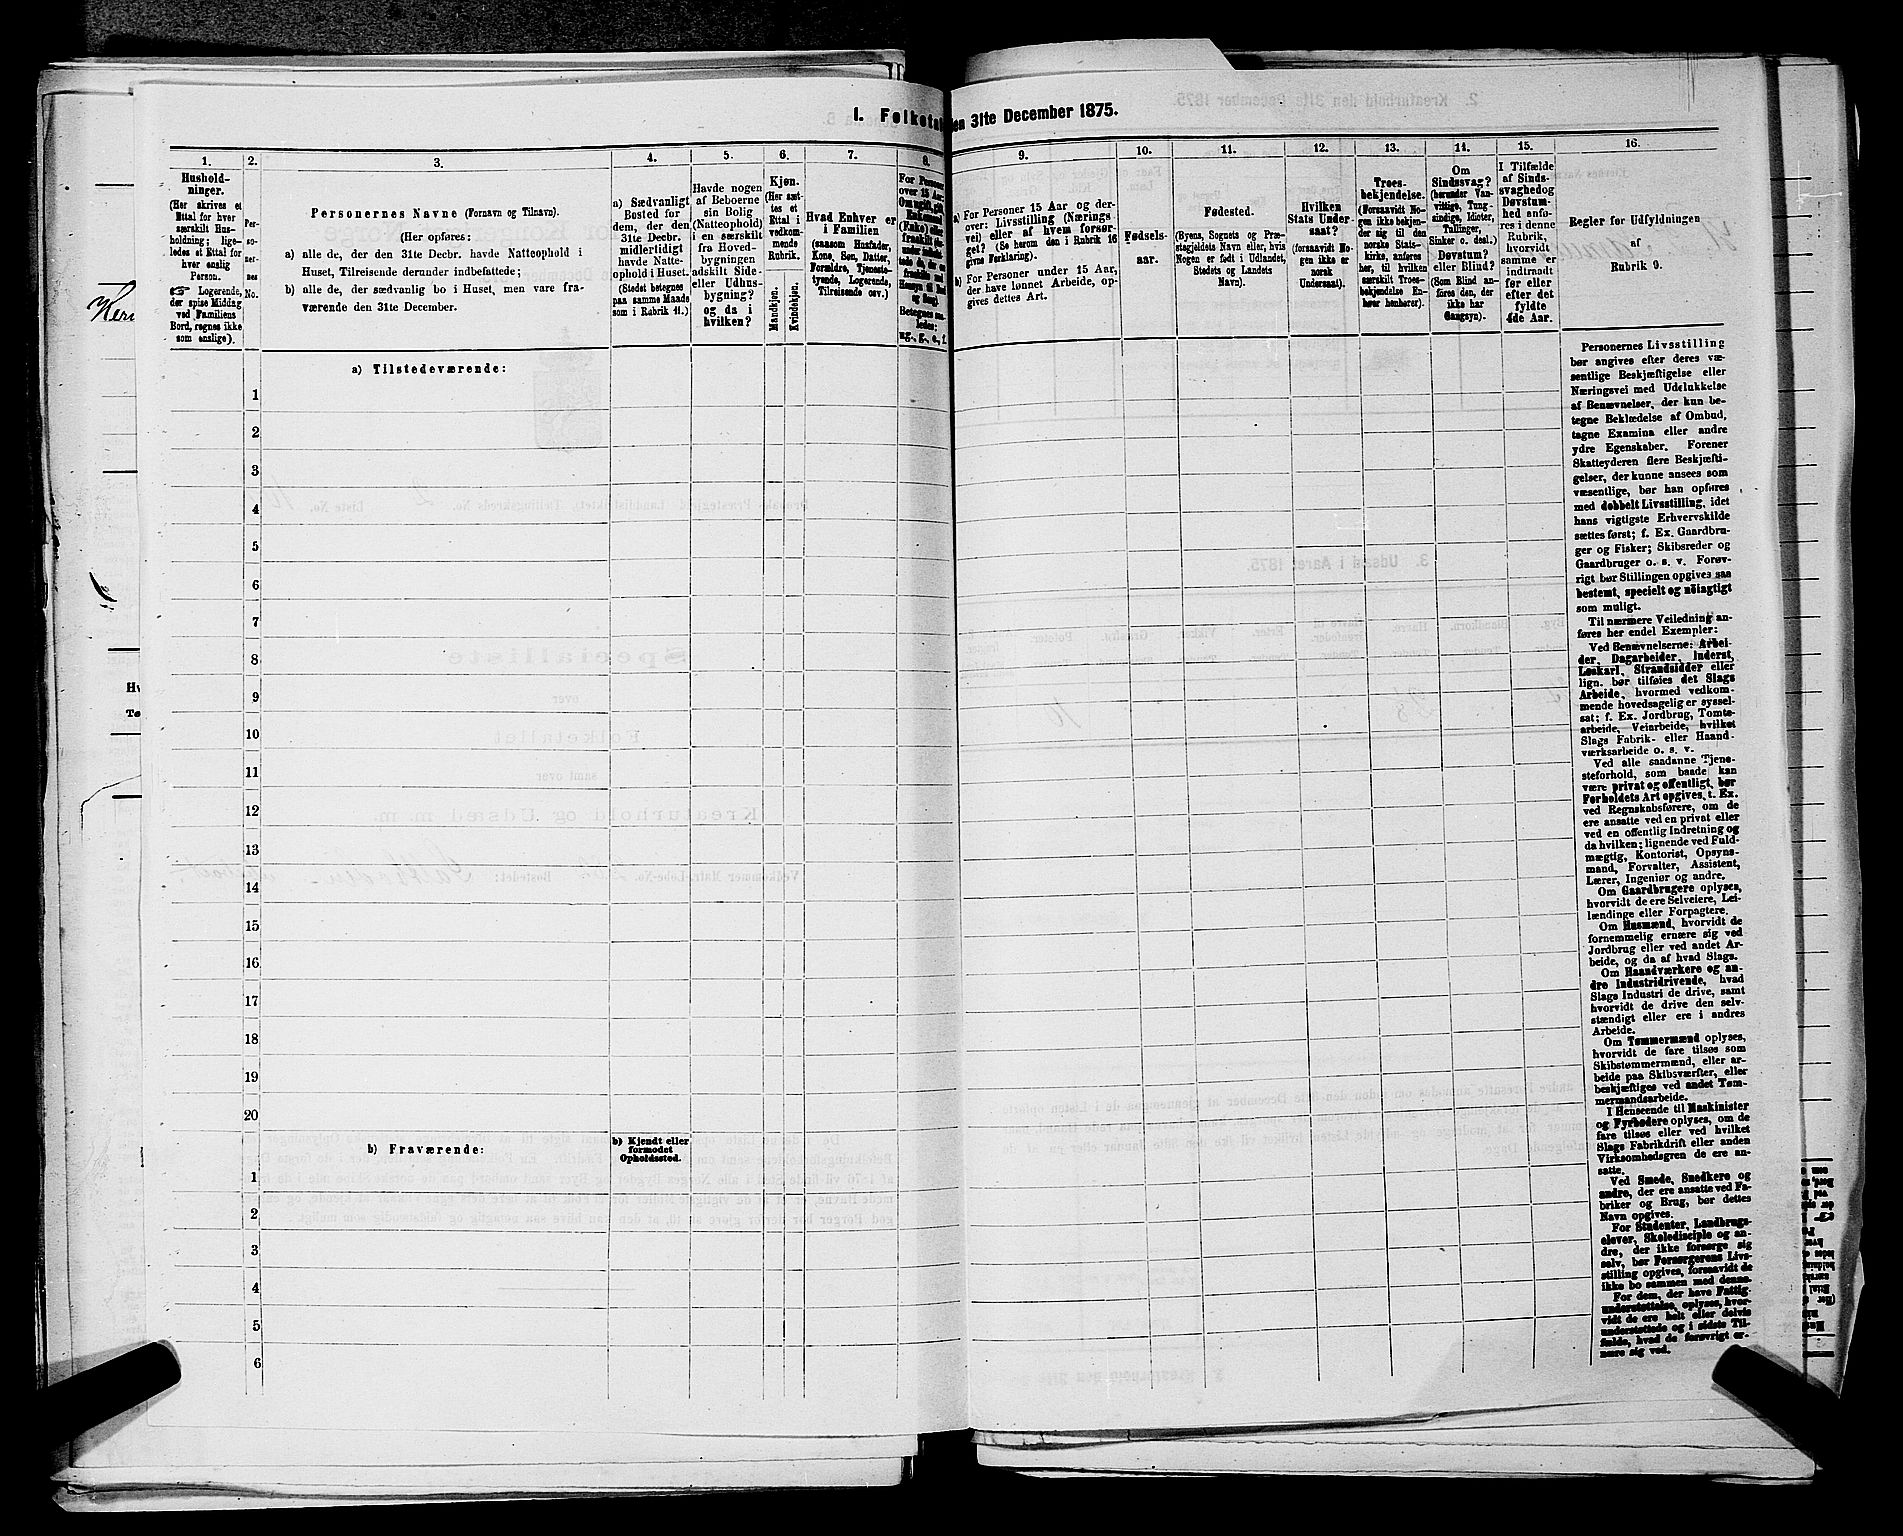 1. Folketal den 31te December 1875.
1.
Hushold-
ninger.
(Her skrives et
Ettal for hver
særskilt Hus-
holdning; lige-
ledes et Ettal for
hver enslig
Person.
☞ Logerende,
der spise Middag
ved Familiens
Bord, regnes ikke
som enslige).
2.
Per-
so-
ner-
nes
No.
3.
Personernes Navne (Fornavn og Tilnavn).
(Her opføres:
a) alle de, der den 31te Decbr. havde Natteophold i
Huset, Tilreisende derunder indbefattede;
b) alle de, der sædvanlig bo i Huset, men vare fra-
værende den 31te December.
4.
a) Sædvanligt
Bosted for
dem, der den
31te Decbr.
midlertidigt
havde Natte-
ophold i Huset.
(Stedet betegnes
paa samme Maade
som i Rubrik 11.)
5.
Havde nogen
af Beboerne
sin Bolig
(Natteophold)
i en særskilt
fra Hoved-
bygningen
adskilt Side-
eller Udhus-
bygning?
og da i
hvilken?
6.
Kjøn.
(Her sæt-
tes et
Ettal i
vedkom-
mende
Rubrik.
Mandkjøn.
Kvindekjøn.
7.
Hvad Enhver er
i Familien
(saasom Husfader,
Kone, Søn, Datter,
Forældre, Tjeneste-
tyende, Logerende,
Tilreisende osv.)
8.
For Personer
over 15 Aar:
9.
a) For Personer 15 Aar og der-
over: Livsstilling (Nærings-
vei) eller af hvem forsør-
get? (Se herom den i Rubrik 16
givne Forklaring).
b) For Personer under 15 Aar,
der have lønnet Arbeide, op-
gives dettes Art.
10.
Fødsels-
aar.
11.
Fødested.
(Byens, Sognets og Præ-
stegjeldets Navn eller, hvis
Nogen er født i Udlandet,
Stedets og Landets
Navn).
12.
Hvilken
Stats Under-
saat?
(forsaavidt No-
gen ikke er
norsk
Undersaat).
13.
Troes-
bekjendelse.
(Forsaavidt No-
gen ikke bekjen-
der sig til den
norske Stats-
kirke, anføres
her, til hvilken
særskilt Troes-
bekjendelse En-
hver henhører).
14.
Om
Sindssvag?
(herunder Van-
vittige, Tung-
sindige, Idioter,
Tullinger,
Sinker o. desl.)
Døvstum?
eller Blind?
(Som Blind an-
føres den, der
ikke har
Gangsyn).
15.
I Tilfælde
af Sinds-
svaghed og
Døvstum-
hed anfø-
res i denne
Rubrik,
hvorvidt
samme er
indtraadt
før eller
efter det
fyldte
4de Aar.
16.
Regler for Udfyldningen
af
Rubrik 9.
a) Tilstedeværende:
1
2
3
4
5
6
7
8
9
10
11
12
13
14
15
16
17
18
19
20
b) Fraværende:
b) Kjendt eller
formodet
Opholdssted.
1
2
3
4
5
6
Personernes Livsstilling
bør angives efter deres væ-
sentlige Beskjæftigelse eller
Næringsvei med Udelukkelse
af Benævnelser, der kun be-
tegne Beklædelse af Ombud,
tagne Examina eller andre
ydre Egenskaber. Forener
Skatteyderen flere Beskjæfti-
gelser, der kunne ansees som
væsentlige, bør han opføres
med dobbelt Livsstilling, idet
hans vigtigste Erhvervskilde
sættes først; f. Ex. Gaardbru-
ger og Fisker; Skibsreder og
Gaardbruger o. s. v. Forøv-
rigt bør Stillingen opgives saa
bestemt, specielt og nøiagtigt
som muligt.
Til nærmere Veiledning an-
føres her endel Exempler:
Ved Benævnelserne: Arbei-
der, Dagarbeider, Inderst,
Løskarl, Strandsidder eller
lign. bør tilføies det Slags
Arbeide, hvormed vedkom-
mende hovedsagelig er syssel-
sat; f. Ex. Jordbrug, Tomte-
arbeide, Veiarbeide, hvilket
Slags Fabrik- eller Haand-
værksarbeide o. s. v.
Ved alle saadanne Tjene-
steforhold, som baade kan
være privat og offentligt, bør
Forholdets Art opgives, t. Ex.
ved Regnskabsførere, om de
ere ansatte ved en privat eller
ved en offentlig Indretning og
da hvilken; lignende ved Fuld-
mægtig, Kontorist, Opsyns-
mand, Forvalter, Assistent,
Lærer, Ingeniør og andre.
Om Gaardbrugere oplyses,
hvorvidt de ere Selveiere, Lei-
lændinge eller Forpagtere.
Om Husmænd, hvorvidt de
fornemmelig ernære sig ved
Jordbrug eller ved andet Ar-
beide, og da af hvad Slags.
Om Haandværkere og an-
dre Industridrivende, hvad
Slags Industri de drive, samt
hvorvidt de drive den selv-
stændigt eller ere i andres
Arbeide.
Om Tømmermænd oplyses,
hvorvidt de fare tilsøs som
Skibstømmermænd, eller ar-
beide paa Skibsværfter, eller
beskjæftiges ved andet Tøm-
mermandsarbeide.
I Henseende til Maskinister
og Fyrbødere oplyses, om de
fare tilsøs eller ved hvilket
Slags Fabrikdrift eller anden
Virksomhedsgren de ere an-
satte.
Ved Smede, Snedkere og
andre, der ere ansatte ved Fa-
briker og Brug, bør dettes
Navn opgives.
For Studenter, Landbrugs-
elever, Skoledisciple og an-
dre, der ikke forsørge sig
selv, bør Forsørgerens Livs-
stilling opgives, forsaavidt de
ikke bo sammen med denne.
For dem, der have Fattig-
understøttelse, oplyses, hvor-
vidt de ere helt eller delvis
understøttede og i sidste Til-
fælde, hvad de forøvrigt er-
nære sig ved.